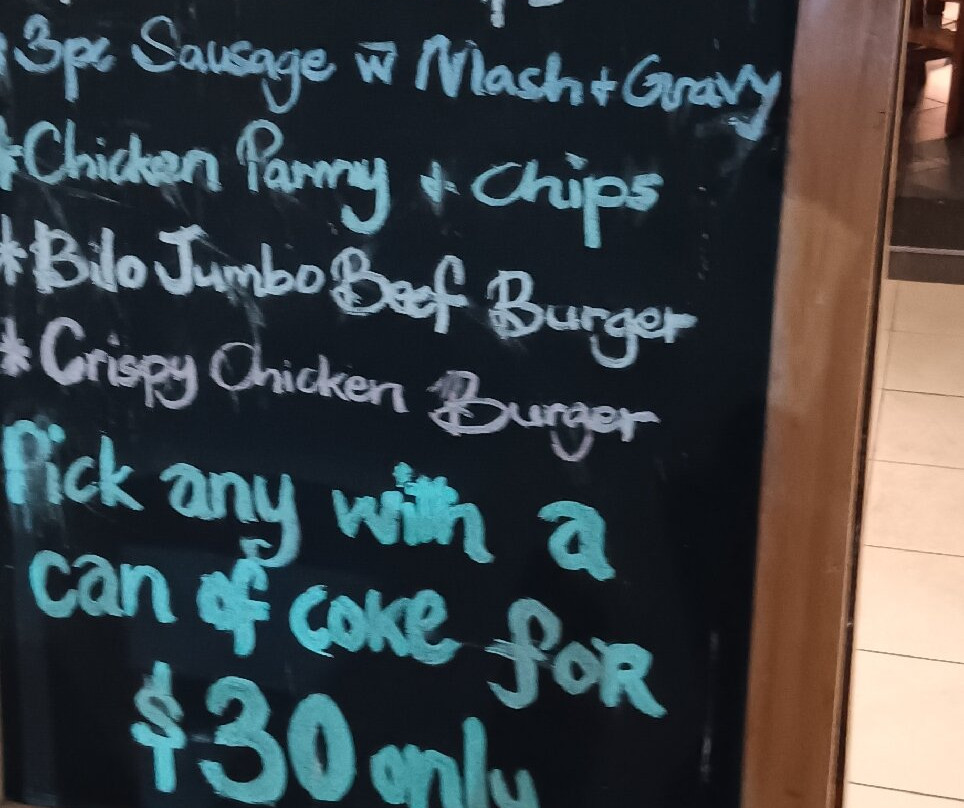 3pc Sausage w Mash + Gravy
* Chicken Parmy + Chips
* Bilo Jumbo Beef Burger
* Crispy Chicken Burger
Pick any with a
can of coke for
$30 only